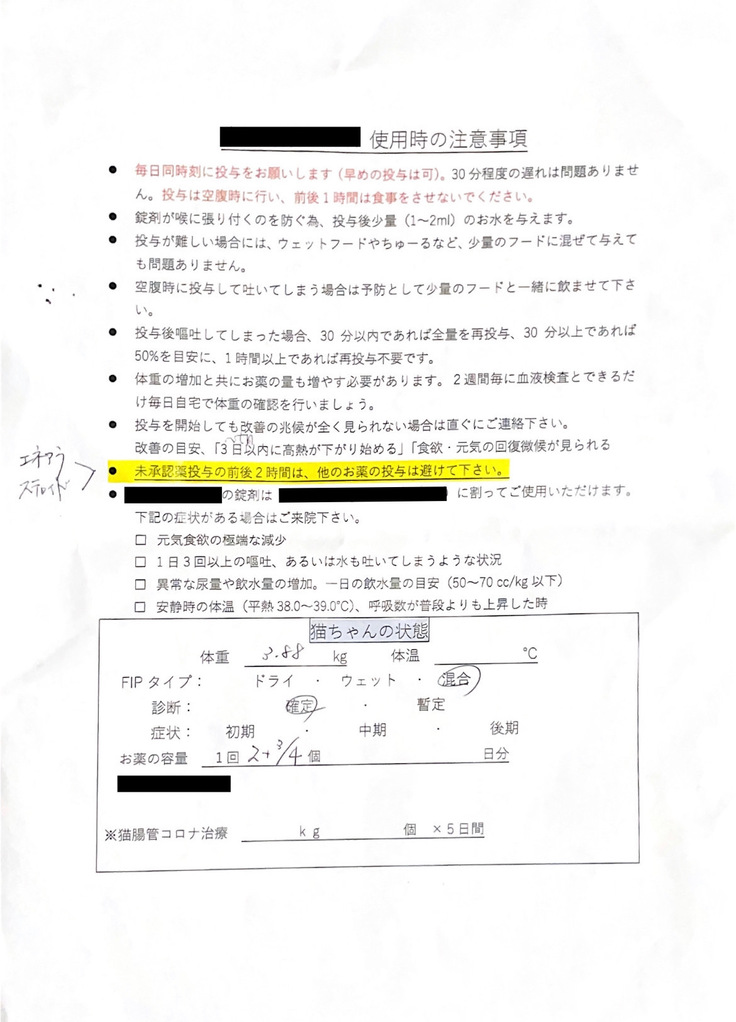 使用時の注意事項
● 毎日同時刻に投与をお願いします（早めの投与は可）。30分程度の遅れは問題ありませ
ん。投与は空腹時に行い、前後1時間は食事をさせないでください。
● 錠剤が喉に張り付くのを防ぐ為、投与後少量（1～2ml）のお水を与えます。
● 投与が難しい場合には、ウェットフードやちゅーるなど、少量のフードに混ぜて与えて
も問題ありません。
● 空腹時に投与して吐いてしまう場合は予防として少量のフードと一緒に飲ませて下さ
い。
● 投与後嘔吐してしまった場合、30分以内であれば全量を再投与、30分以上であれば
50%を目安に、1時間以上であれば再投与不要です。
● 体重の増加と共にお薬の量も増やす必要があります。2週間毎に血液検査とできるだ
け毎日自宅で体重の確認を行いましょう。
● 投与を開始しても改善の兆候が全く見られない場合は直ぐにご連絡下さい。
改善の目安、「3日以内に高熱が下がり始める」「食欲・元気の回復徴候が見られる
エネアラ
ステロイド
● 未承認薬投与の前後2時間は、他のお薬の投与は避けて下さい。
● の錠剤は に割ってご使用いただけます。
下記の症状がある場合はご来院下さい。
□ 元気食欲の極端な減少
□ 1日3回以上の嘔吐、あるいは水も吐いてしまうような状況
□ 異常な尿量や飲水量の増加。一日の飲水量の目安（50～70 cc/kg以下）
□ 安静時の体温（平熱38.0～39.0℃）、呼吸数が普段よりも上昇した時
猫ちゃんの状態
体重 3.88 kg 体温 ℃
FIPタイプ： ドライ ・ ウェット ・ 混合
診断： 確定 ・ 暫定
症状： 初期 ・ 中期 ・ 後期
お薬の容量 1回 2+3/4 個 日分
※猫腸管コロナ治療 kg 個 ×5日間